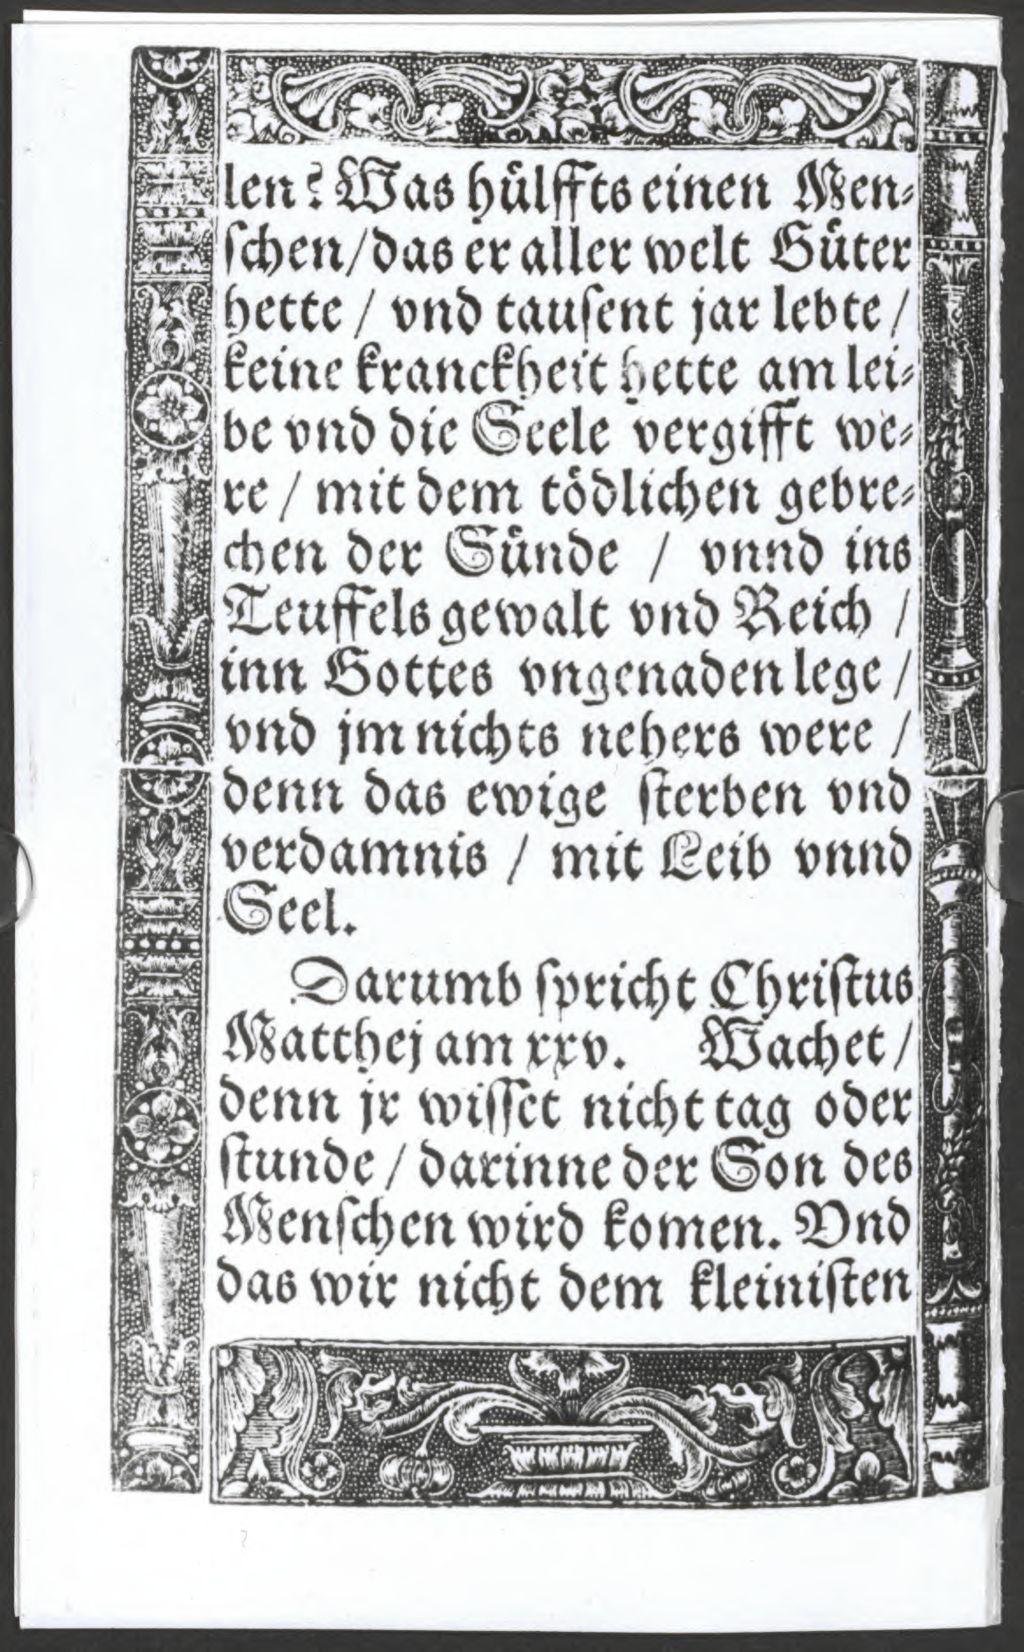 len? Was hülffts einen Men⸗
ſchen/das er aller welt Güter
hette / vnd tauſent jar lebte /
keine kranckheit hette am lei⸗
be vnd die Seele vergifft we⸗
re / mit dem tödlichen gebre⸗
chen der Sünde / vnnd ins
Teuffels gewalt vnd Reich /
inn Gottes vngenaden lege /
vnd jm nichts nehers were /
denn das ewige ſterben vnd
verdamnis / mit Leib vnnd
Seel.
Darumb ſpricht Chriſtus
Matthej am xxv. Wachet /
denn jr wiſſet nicht tag oder
ſtunde / darinne der Son des
Menſchen wird komen. Vnd
das wir nicht dem kleiniſten